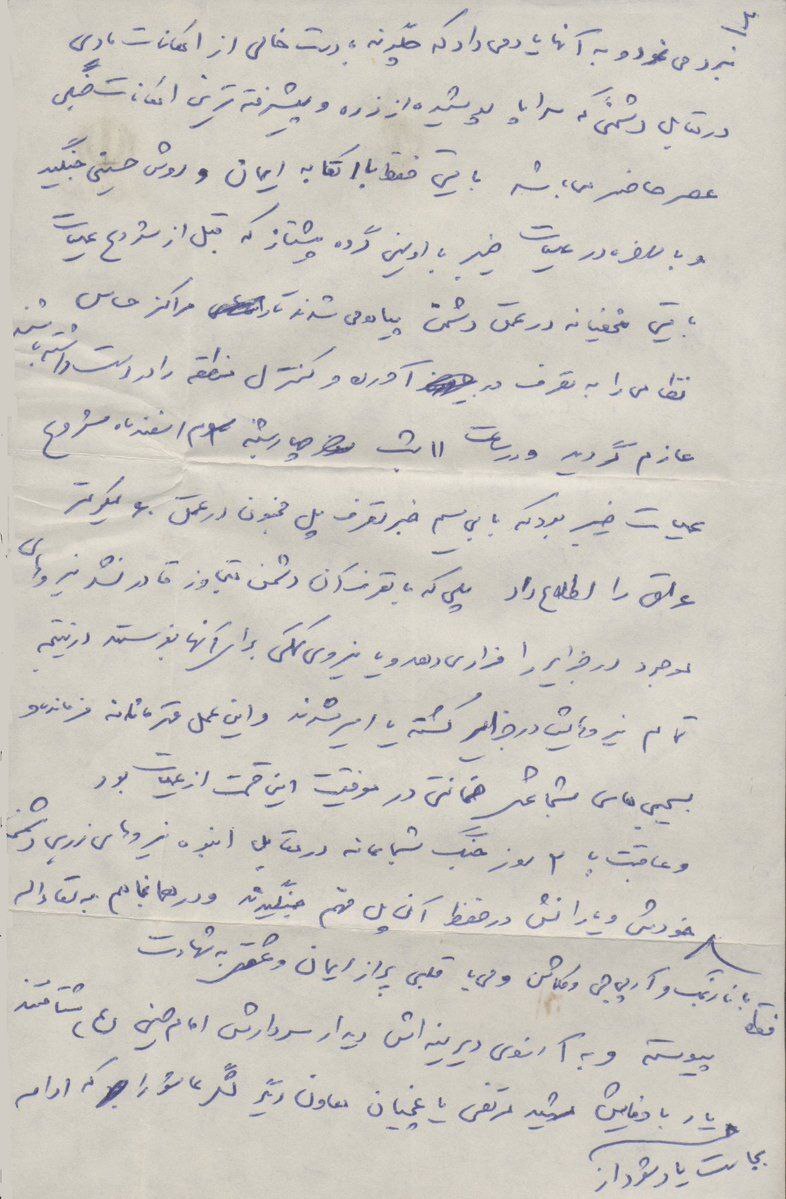 نبرد می نمود و به آنها یاد می داد که چگونه با دست خالی از امکانات مادی
در مقابل دشمنی که سراپا پوشیده از زره و پیشرفته ترین امکانات جنگی
عصر حاضر می باشد بایستی فقط با اتکا به ایمان و روش حسینی جنگید
و بالاخره در عملیات خیبر با اولین گروه پیشتاز که قبل از شروع عملیات
بایستی مخفیانه در عمق دشمن پیاده می شدند تا مراکز حساس
نظامی را به تصرف در آورده و کنترل منطقه را در دست داشته باشند
عازم گردید و در ساعت ۱۱ شب چهارشنبه سوم اسفندماه شروع
عملیات خیبر بود که با بی سیم خبر تصرف پل مجنون در عمق کیلومتر
عراق را اطلاع داد پلی که با تصرف آن دشمن متجاوز قادر نشد نیروهای
موجود در جزایر را فراری دهد و یا نیروی کمکی برای آنها بفرستد در نتیجه
تمام نیروهایش در جزایر کشته یا اسیر شدند و این عمل قهرمانانه فرمانده و
بسیجی های شجاعش ضمانتی در موفقیت این قسمت از عملیات بود
و عاقبت با ۳ روز جنگ شجاعانه در مقابل انبوه نیروهای زرهی دشمن
خودش و یارانش در حفظ آن پل مهم جنگیدند و در همانجا هم به لقاءاله
فقط با نارنجک و آرپی جی و کلاش ولی با قلبی پر از ایمان و عشق به شهادت
پیوسته و به آرزوی دیرینه اش دیدار سردارش امام حسین (ع) شتافتند
یار باوفایش شهید مرتضی یاغچیان معاون دیگر لشگر عاشورا که ادامه
بجاست یاد شود از